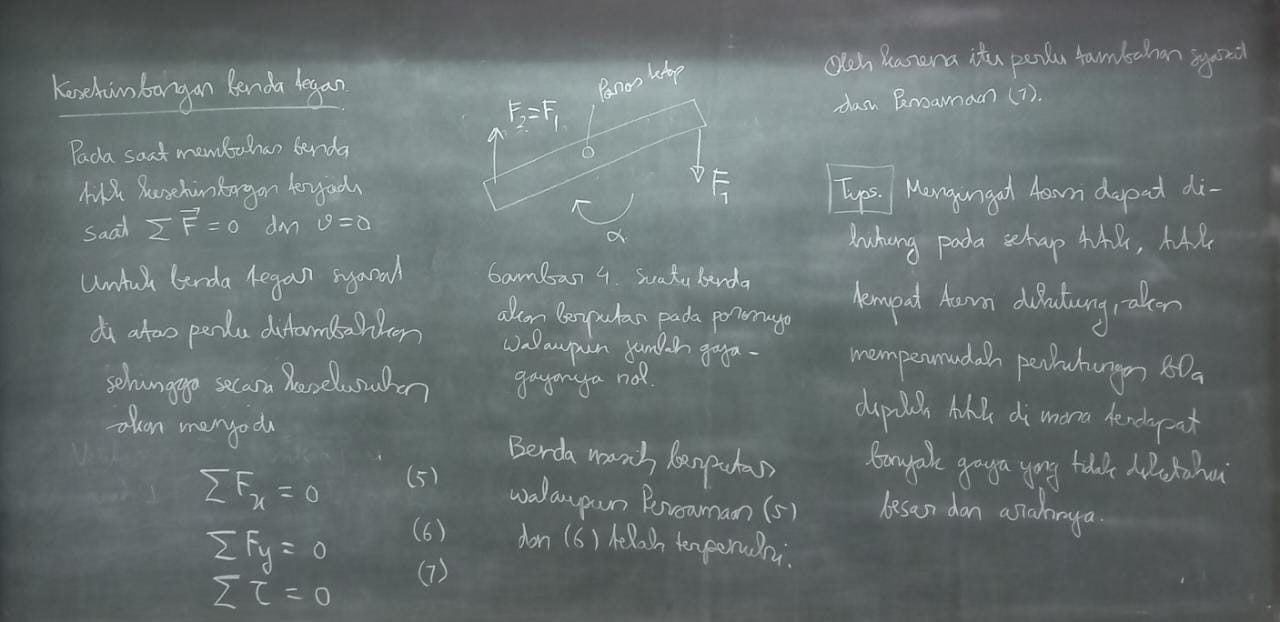 Kesetimbangan benda tegar.
Pada saat membahas benda
titik kesetimbangan terjadi
saat ∑ F⃗ = 0 dan v = 0
Untuk benda tegar syarat
di atas perlu ditambahkan
sehingga secara keseluruhan
akan menjadi
∑ Fx = 0 (5)
∑ Fy = 0 (6)
∑ τ = 0 (7)
Poros tetap
F₂ = F₁
F₁
α
Gambar 4. Suatu benda
akan berputar pada porosnya
walaupun jumlah gaya-
gayanya nol.
Benda masih berputar
walaupun Persamaan (5)
dan (6) telah terpenuhi.
Oleh karena itu perlu tambahan syarat
dari Persamaan (7).
Tips. Mengingat torsi dapat di-
hitung pada setiap titik, titik
tempat torsi dihitung, akan
mempermudah perhitungan bila
dipilih titik di mana terdapat
banyak gaya yang tidak diketahui
besar dan arahnya.